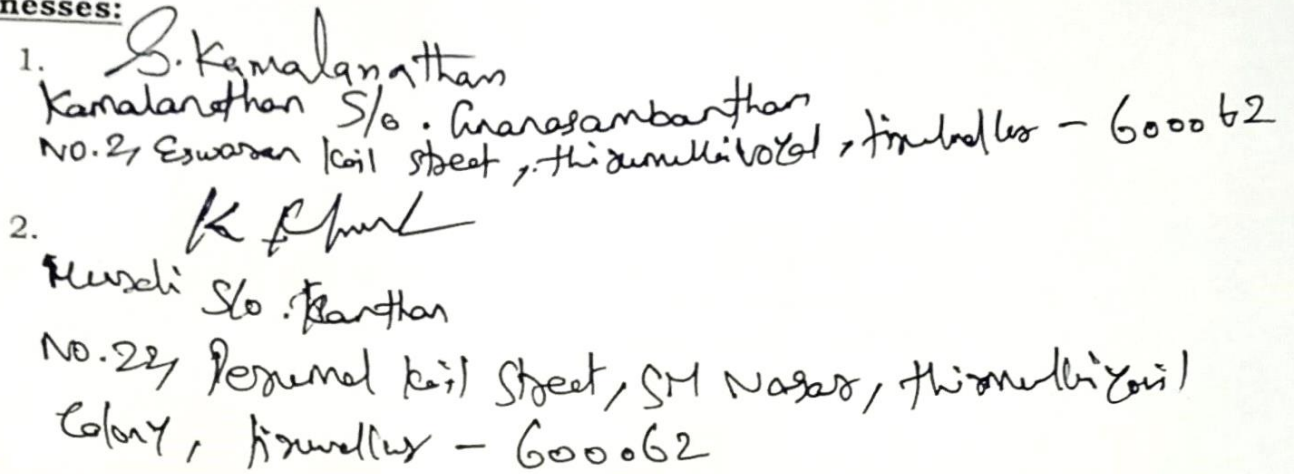 nesses:
1. S. Kamalanathan
Kamalanathan S/o. Gnanasambanthan
No. 2, Eswaran Koil street, thirumullaivoyal, tiruvallur - 600062
2. K
Murali S/o. Kanthan
No. 22, Perumal Koil Street, SM Nagar, thirumullaivoyil
Colony, tiruvallur - 600062